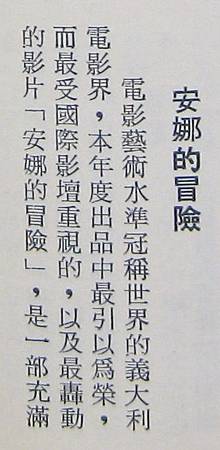 安娜的冒險
電影藝術水準冠稱世界的義大利
電影界，本年度出品中最引以爲榮，
而最受國際影壇重視的，以及最轟動
的影片「安娜的冒險」，是一部充滿